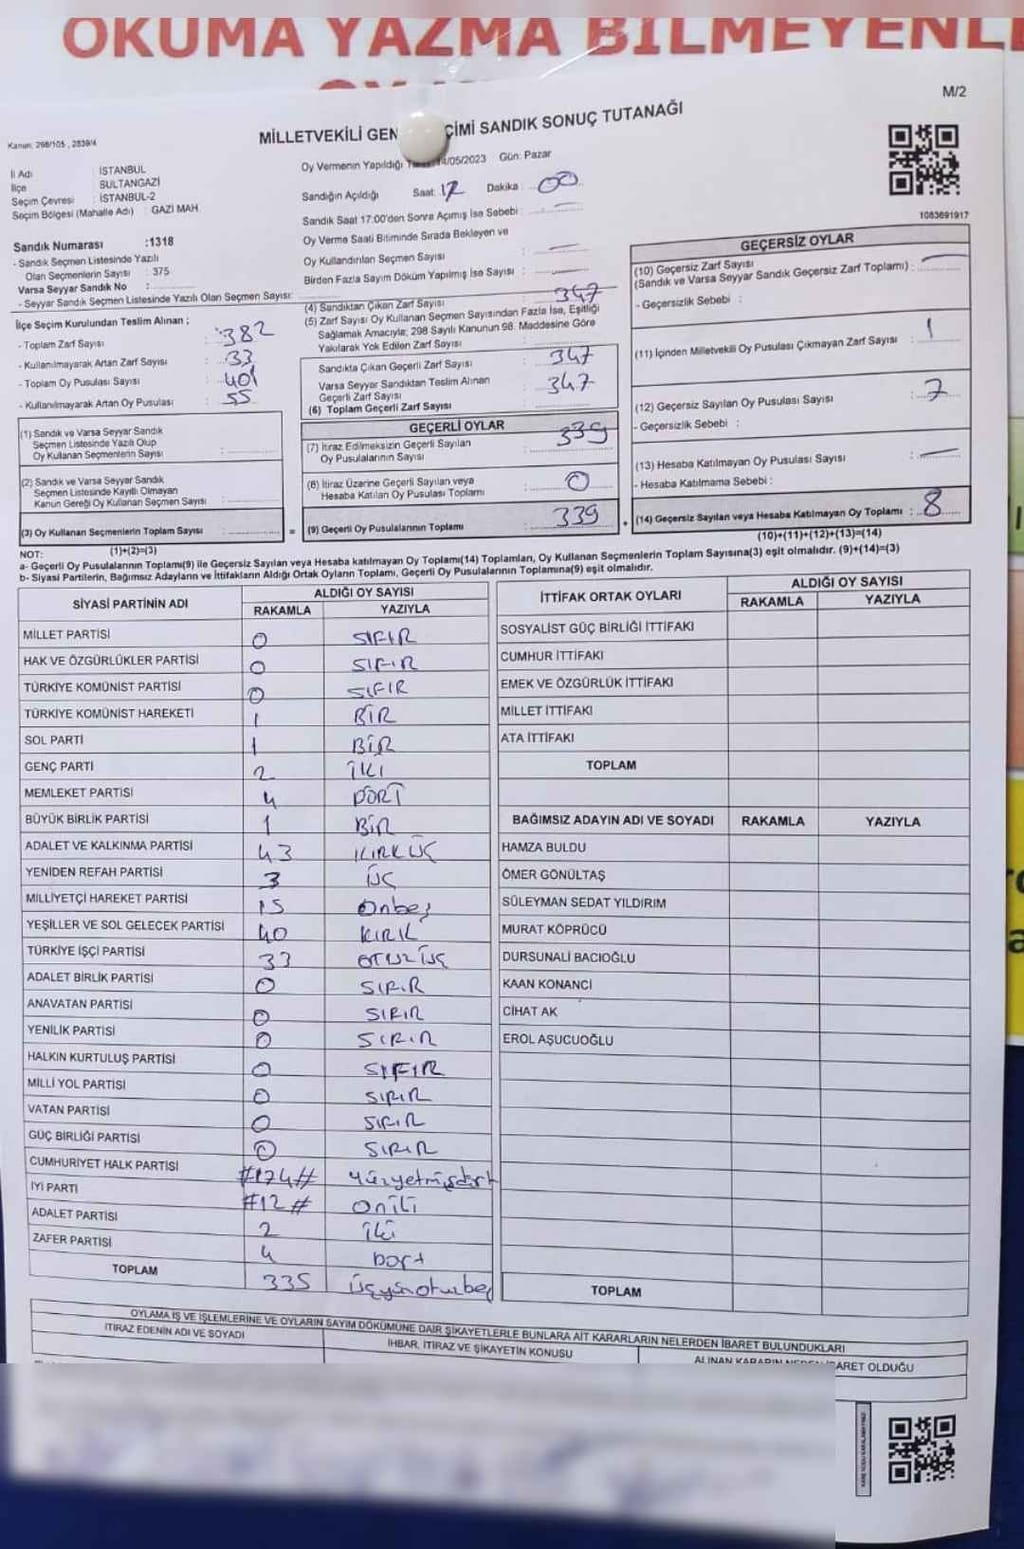 OKUMA YAZMA BİLMEYENL
M/2
MİLLETVEKİLİ GEN ÇİMİ SANDIK SONUÇ TUTANAĞI
Kanun: 298/105 , 2839/4
İl Adı : İSTANBUL
İlçe : SULTANGAZİ
Seçim Çevresi : İSTANBUL-2
Seçim Bölgesi (Mahalle Adı) : GAZİ MAH.
Sandık Numarası :1318
- Sandık Seçmen Listesinde Yazılı
Olan Seçmenlerin Sayısı : 375
Varsa Seyyar Sandık No :
- Seyyar Sandık Seçmen Listesinde Yazılı Olan Seçmen Sayısı:
İlçe Seçim Kurulundan Teslim Alınan ;
- Toplam Zarf Sayısı : 382
- Kullanılmayarak Artan Zarf Sayısı : 33
- Toplam Oy Pusulası Sayısı : 401
- Kullanılmayarak Artan Oy Pusulası : 55
(1) Sandık ve Varsa Seyyar Sandık
Seçmen Listesinde Yazılı Olup
Oy Kullanan Seçmenlerin Sayısı :
(2) Sandık ve Varsa Seyyar Sandık
Seçmen Listesinde Kayıtlı Olmayan
Kanun Gereği Oy Kullanan Seçmen Sayısı :
(3) Oy Kullanan Seçmenlerin Toplam Sayısı :
(1)+(2)=(3)
Oy Vermenin Yapıldığı 14/05/2023 Gün: Pazar
Sandığın Açıldığı Saat: 17 Dakika : 00
Sandık Saat 17:00'den Sonra Açımış İse Sebebi : —
Oy Verme Saati Bitiminde Sırada Bekleyen ve
Oy Kullandırılan Seçmen Sayısı : —
Birden Fazla Sayım Döküm Yapılmış İse Sayısı : —
(4) Sandıktan Çıkan Zarf Sayısı : 347
(5) Zarf Sayısı Oy Kullanan Seçmen Sayısından Fazla İse, Eşitliği
Sağlamak Amacıyla; 298 Sayılı Kanunun 98. Maddesine Göre
Yakılarak Yok Edilen Zarf Sayısı :
Sandıkta Çıkan Geçerli Zarf Sayısı : 347
Varsa Seyyar Sandıktan Teslim Alınan
Geçerli Zarf Sayısı : 347
(6) Toplam Geçerli Zarf Sayısı :
GEÇERLİ OYLAR
(7) İtiraz Edilmeksizin Geçerli Sayılan
Oy Pusulalarının Sayısı : 339
(8) İtiraz Üzerine Geçerli Sayılan veya
Hesaba Katılan Oy Pusulası Toplamı : 0
= (9) Geçerli Oy Pusulalarının Toplamı : 339
1083691917
GEÇERSİZ OYLAR
(10) Geçersiz Zarf Sayısı
(Sandık ve Varsa Seyyar Sandık Geçersiz Zarf Toplamı) : —
- Geçersizlik Sebebi :
(11) İçinden Milletvekili Oy Pusulası Çıkmayan Zarf Sayısı : 1
(12) Geçersiz Sayılan Oy Pusulası Sayısı : 7
- Geçersizlik Sebebi :
(13) Hesaba Katılmayan Oy Pusulası Sayısı : —
- Hesaba Katılmama Sebebi :
+ (14) Geçersiz Sayılan veya Hesaba Katılmayan Oy Toplamı : 8
(10)+(11)+(12)+(13)=(14)
NOT:
a- Geçerli Oy Pusulalarının Toplamı(9) ile Geçersiz Sayılan veya Hesaba katılmayan Oy Toplamı(14) Toplamları, Oy Kullanan Seçmenlerin Toplam Sayısına(3) eşit olmalıdır. (9)+(14)=(3)
b- Siyasi Partilerin, Bağımsız Adayların ve İttifakların Aldığı Ortak Oyların Toplamı, Geçerli Oy Pusulalarının Toplamına(9) eşit olmalıdır.
SİYASİ PARTİNİN ADI ALDIĞI OY SAYISI
RAKAMLA YAZIYLA
MİLLET PARTİSİ 0 SIFIR
HAK VE ÖZGÜRLÜKLER PARTİSİ 0 SIFIR
TÜRKİYE KOMÜNİST PARTİSİ 0 SIFIR
TÜRKİYE KOMÜNİST HAREKETİ 1 BİR
SOL PARTİ 1 BİR
GENÇ PARTİ 2 İKİ
MEMLEKET PARTİSİ 4 DÖRT
BÜYÜK BİRLİK PARTİSİ 1 BİR
ADALET VE KALKINMA PARTİSİ 43 KIRKÜÇ
YENİDEN REFAH PARTİSİ 3 ÜÇ
MİLLİYETÇİ HAREKET PARTİSİ 15 Onbeş
YEŞİLLER VE SOL GELECEK PARTİSİ 40 KIRK
TÜRKİYE İŞÇİ PARTİSİ 33 OTUZÜÇ
ADALET BİRLİK PARTİSİ 0 SIFIR
ANAVATAN PARTİSİ 0 SIFIR
YENİLİK PARTİSİ 0 SIFIR
HALKIN KURTULUŞ PARTİSİ 0 SIFIR
MİLLİ YOL PARTİSİ 0 SIFIR
VATAN PARTİSİ 0 SIFIR
GÜÇ BİRLİĞİ PARTİSİ 0 SIFIR
CUMHURİYET HALK PARTİSİ #174# Yüzyetmişdört
İYİ PARTİ #12# oniki
ADALET PARTİSİ 2 iki
ZAFER PARTİSİ 4 Dört
TOPLAM 335 üçyüzotuzbeş
İTTİFAK ORTAK OYLARI ALDIĞI OY SAYISI
RAKAMLA YAZIYLA
SOSYALİST GÜÇ BİRLİĞİ İTTİFAKI
CUMHUR İTTİFAKI
EMEK VE ÖZGÜRLÜK İTTİFAKI
MİLLET İTTİFAKI
ATA İTTİFAKI
TOPLAM
BAĞIMSIZ ADAYIN ADI VE SOYADI RAKAMLA YAZIYLA
HAMZA BULDU
ÖMER GÖNÜLTAŞ
SÜLEYMAN SEDAT YILDIRIM
MURAT KÖPRÜCÜ
DURSUNALİ BACIOĞLU
KAAN KONANCİ
CİHAT AK
EROL AŞUCUOĞLU
TOPLAM
OYLAMA İŞ VE İŞLEMLERİNE VE OYLARIN SAYIM DÖKÜMÜNE DAİR ŞİKAYETLERLE BUNLARA AİT KARARLARIN NELERDEN İBARET BULUNDUKLARI
İTİRAZ EDENİN ADI VE SOYADI İHBAR, İTİRAZ VE ŞİKAYETİN KONUSU ALINAN KARARIN NEDEN İBARET OLDUĞU